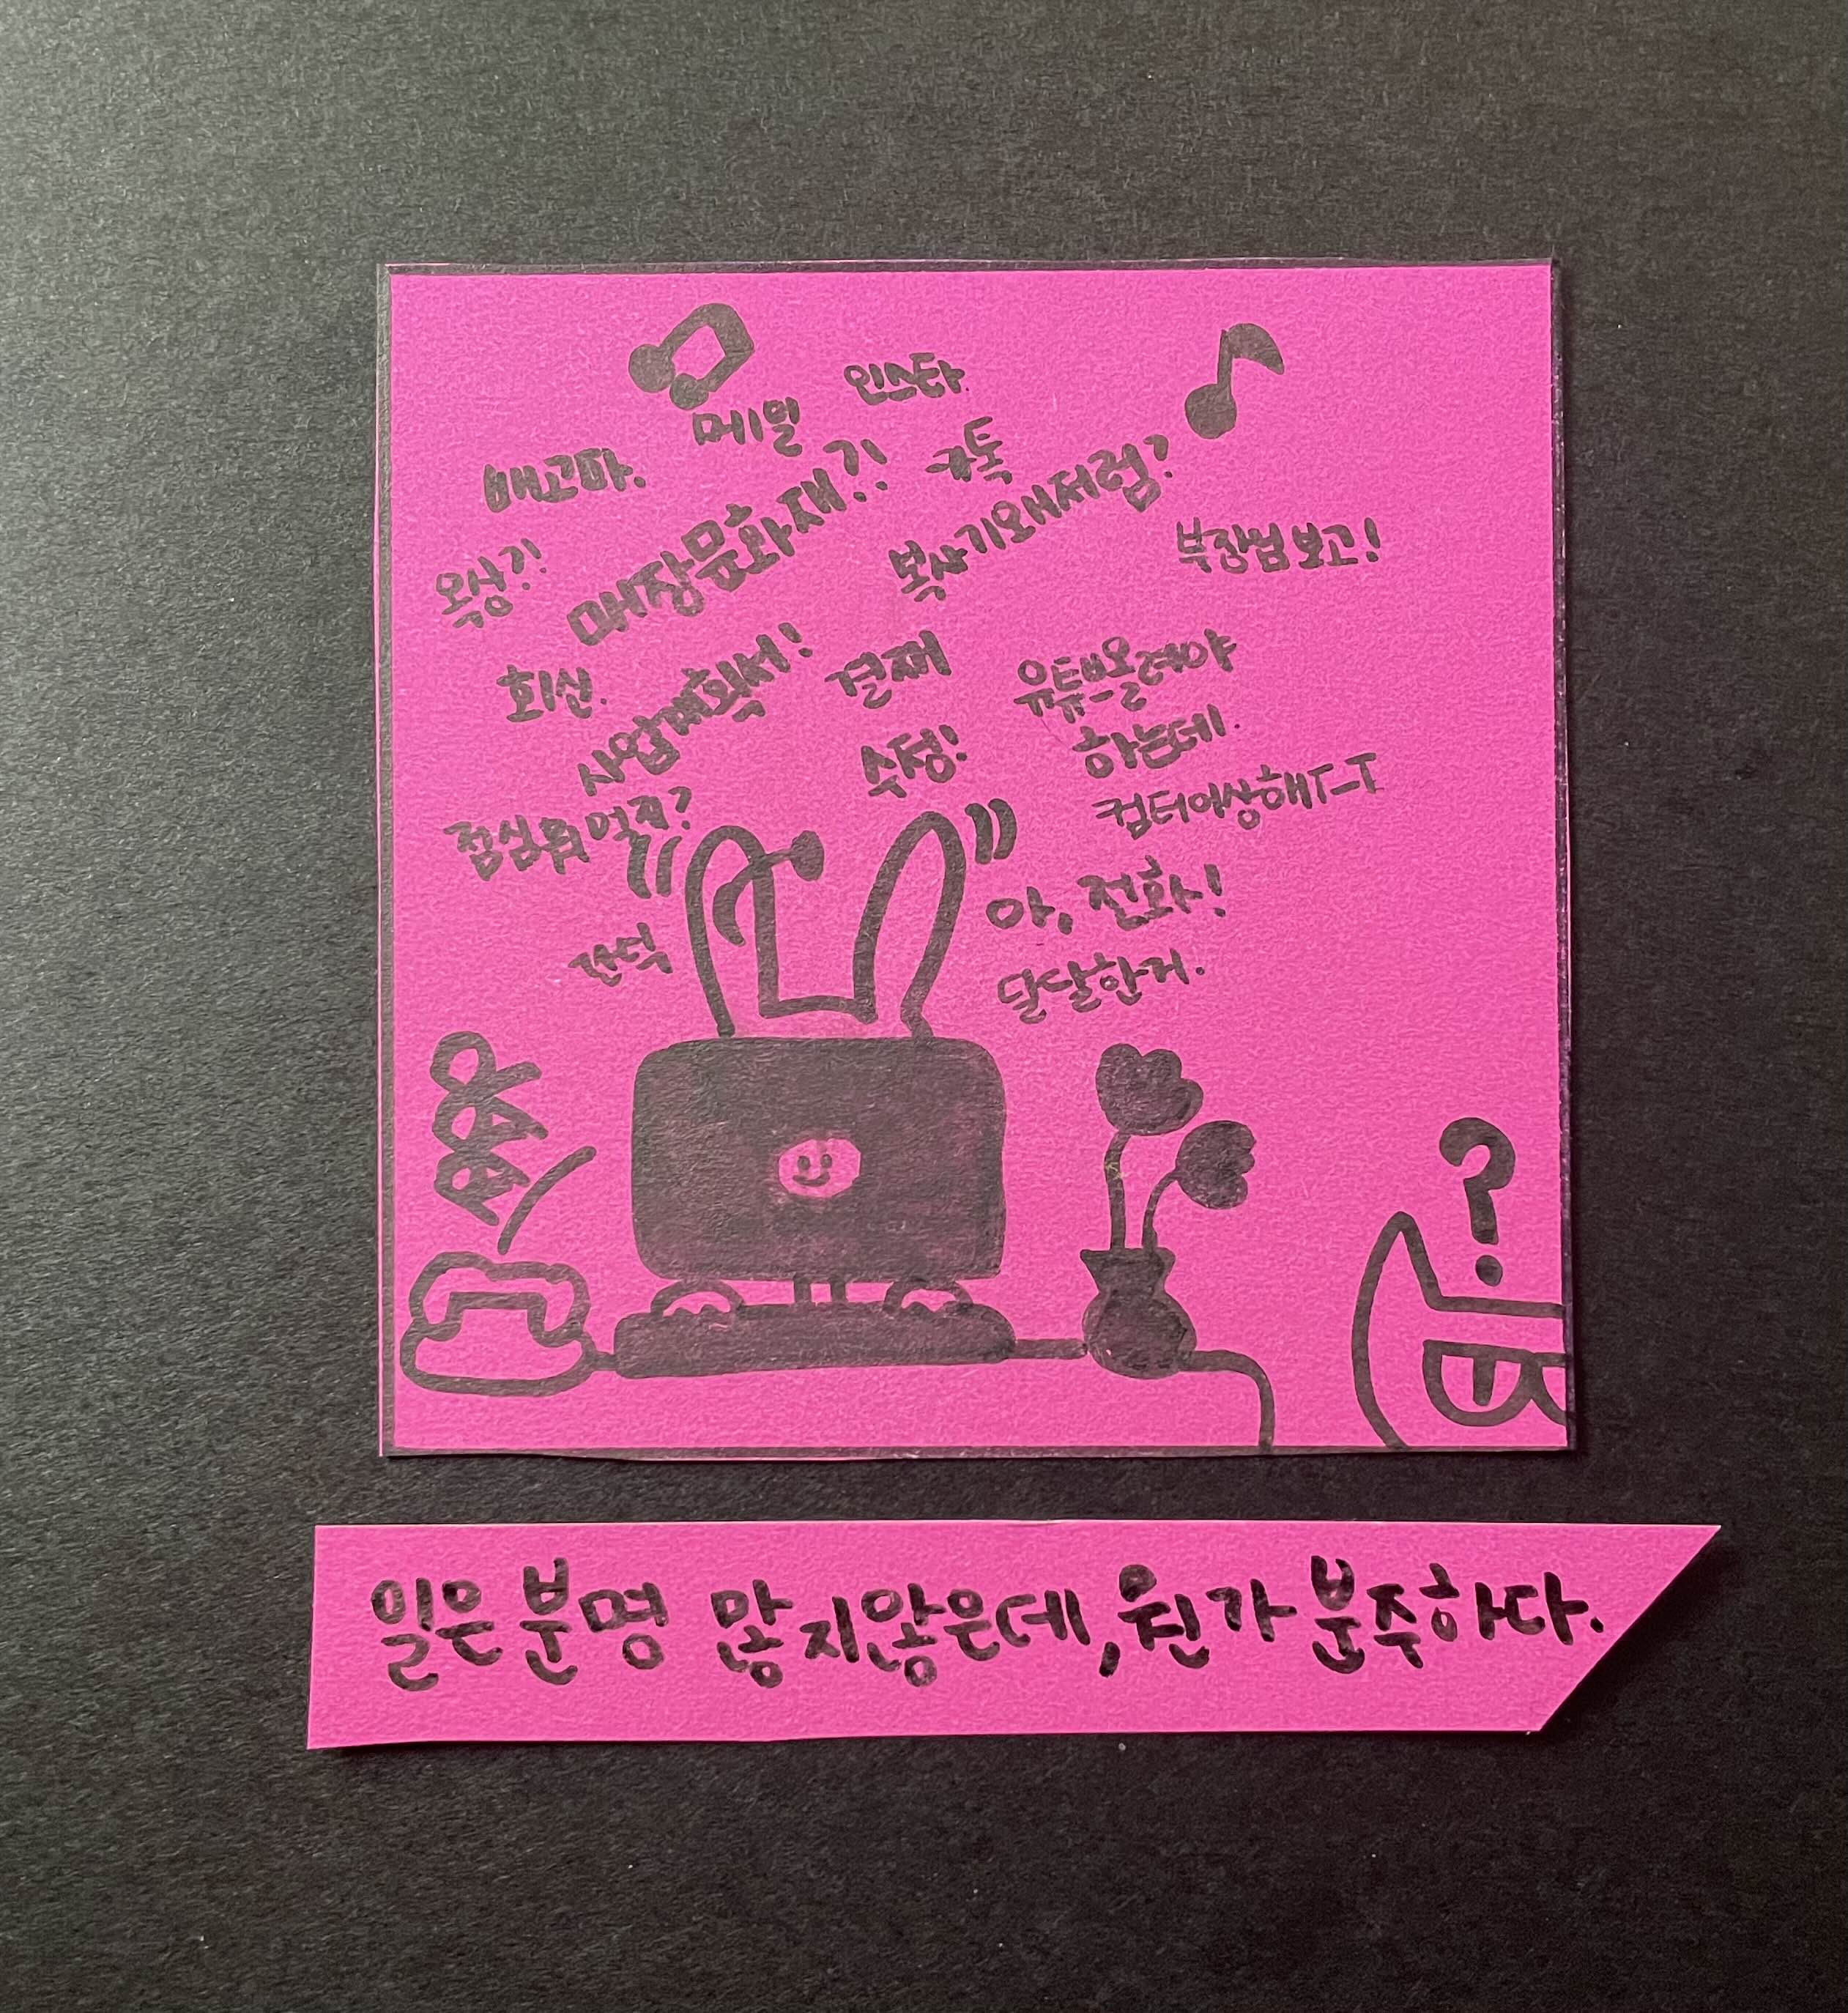 인스타
메일
배고파.
카톡
매장문화재?!
복사기왜저럼?
부장님보고!
옥상?!
회신.
사업계획서!
결재
유튜브올려야
하는데.
수정!
컴터이상해T-T
점심뭐먹지?
아, 전화!
간식
달달한거.
?
일은 분명 많지않은데, 뭔가 분주하다.